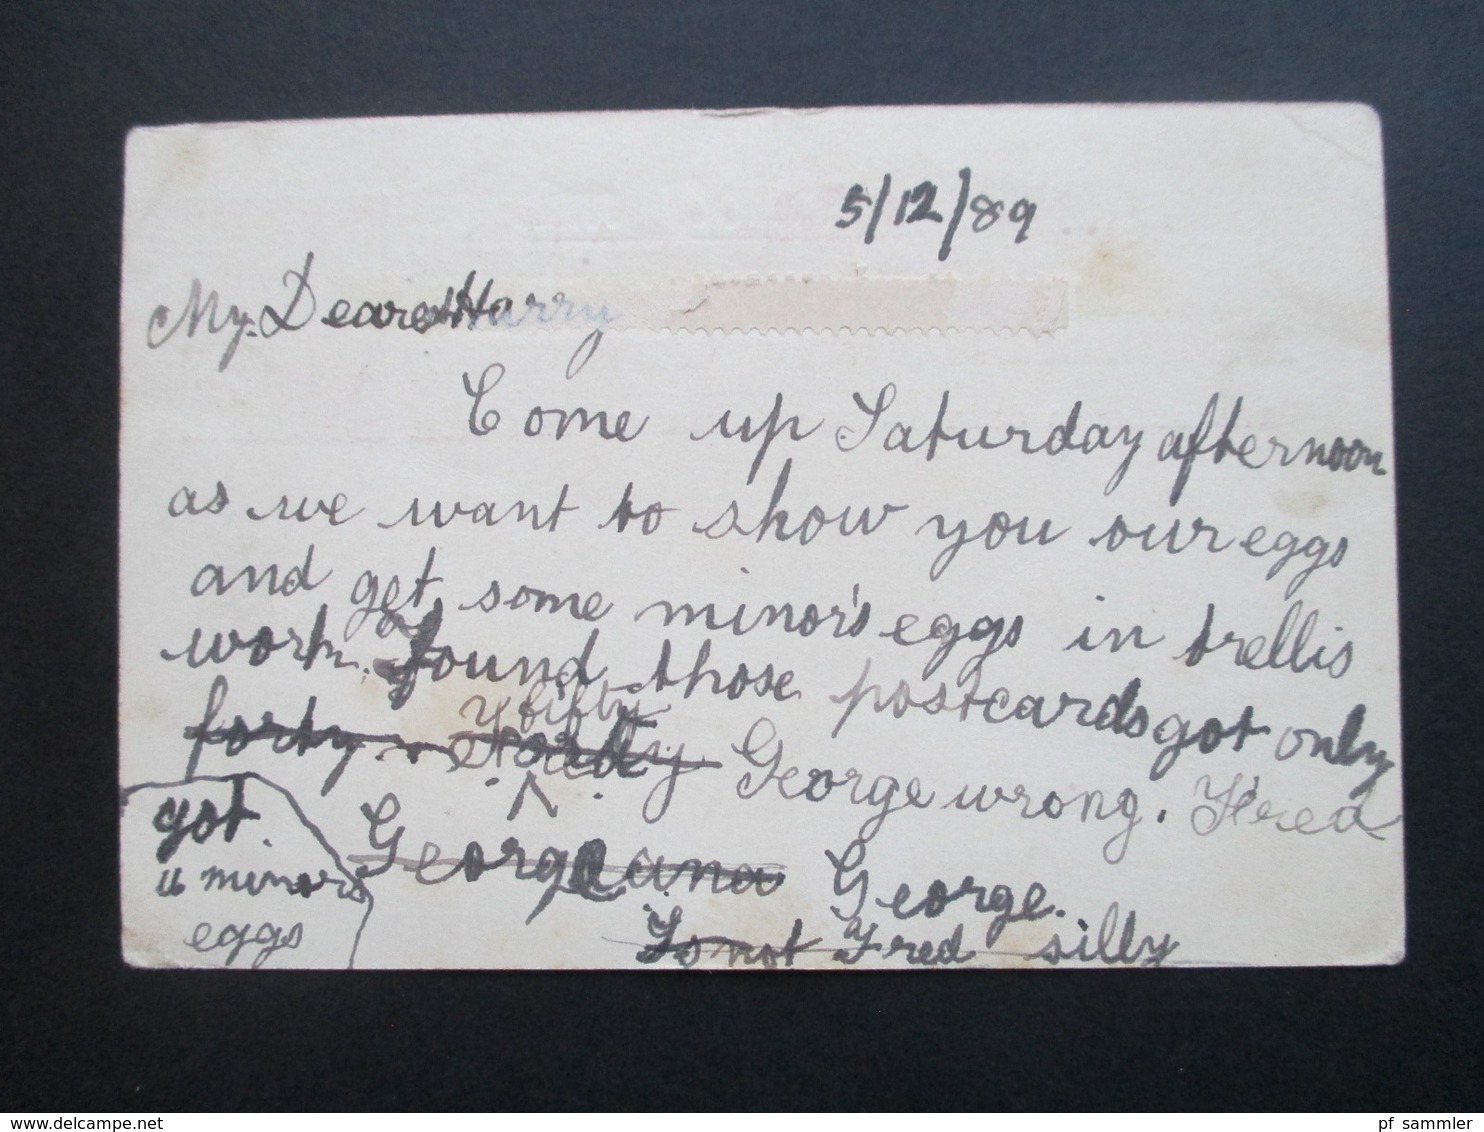 5/12/89
My Dearest Harry
Come up Saturday afternoon
as we want to show you our eggs
and get some minor's eggs in trellis
work. found those postcards got only
fifty
forty George wrong. Fred
Georgeana George.
Is not Fred silly
got
11 minors
eggs
delcampe.net
pf_sammler